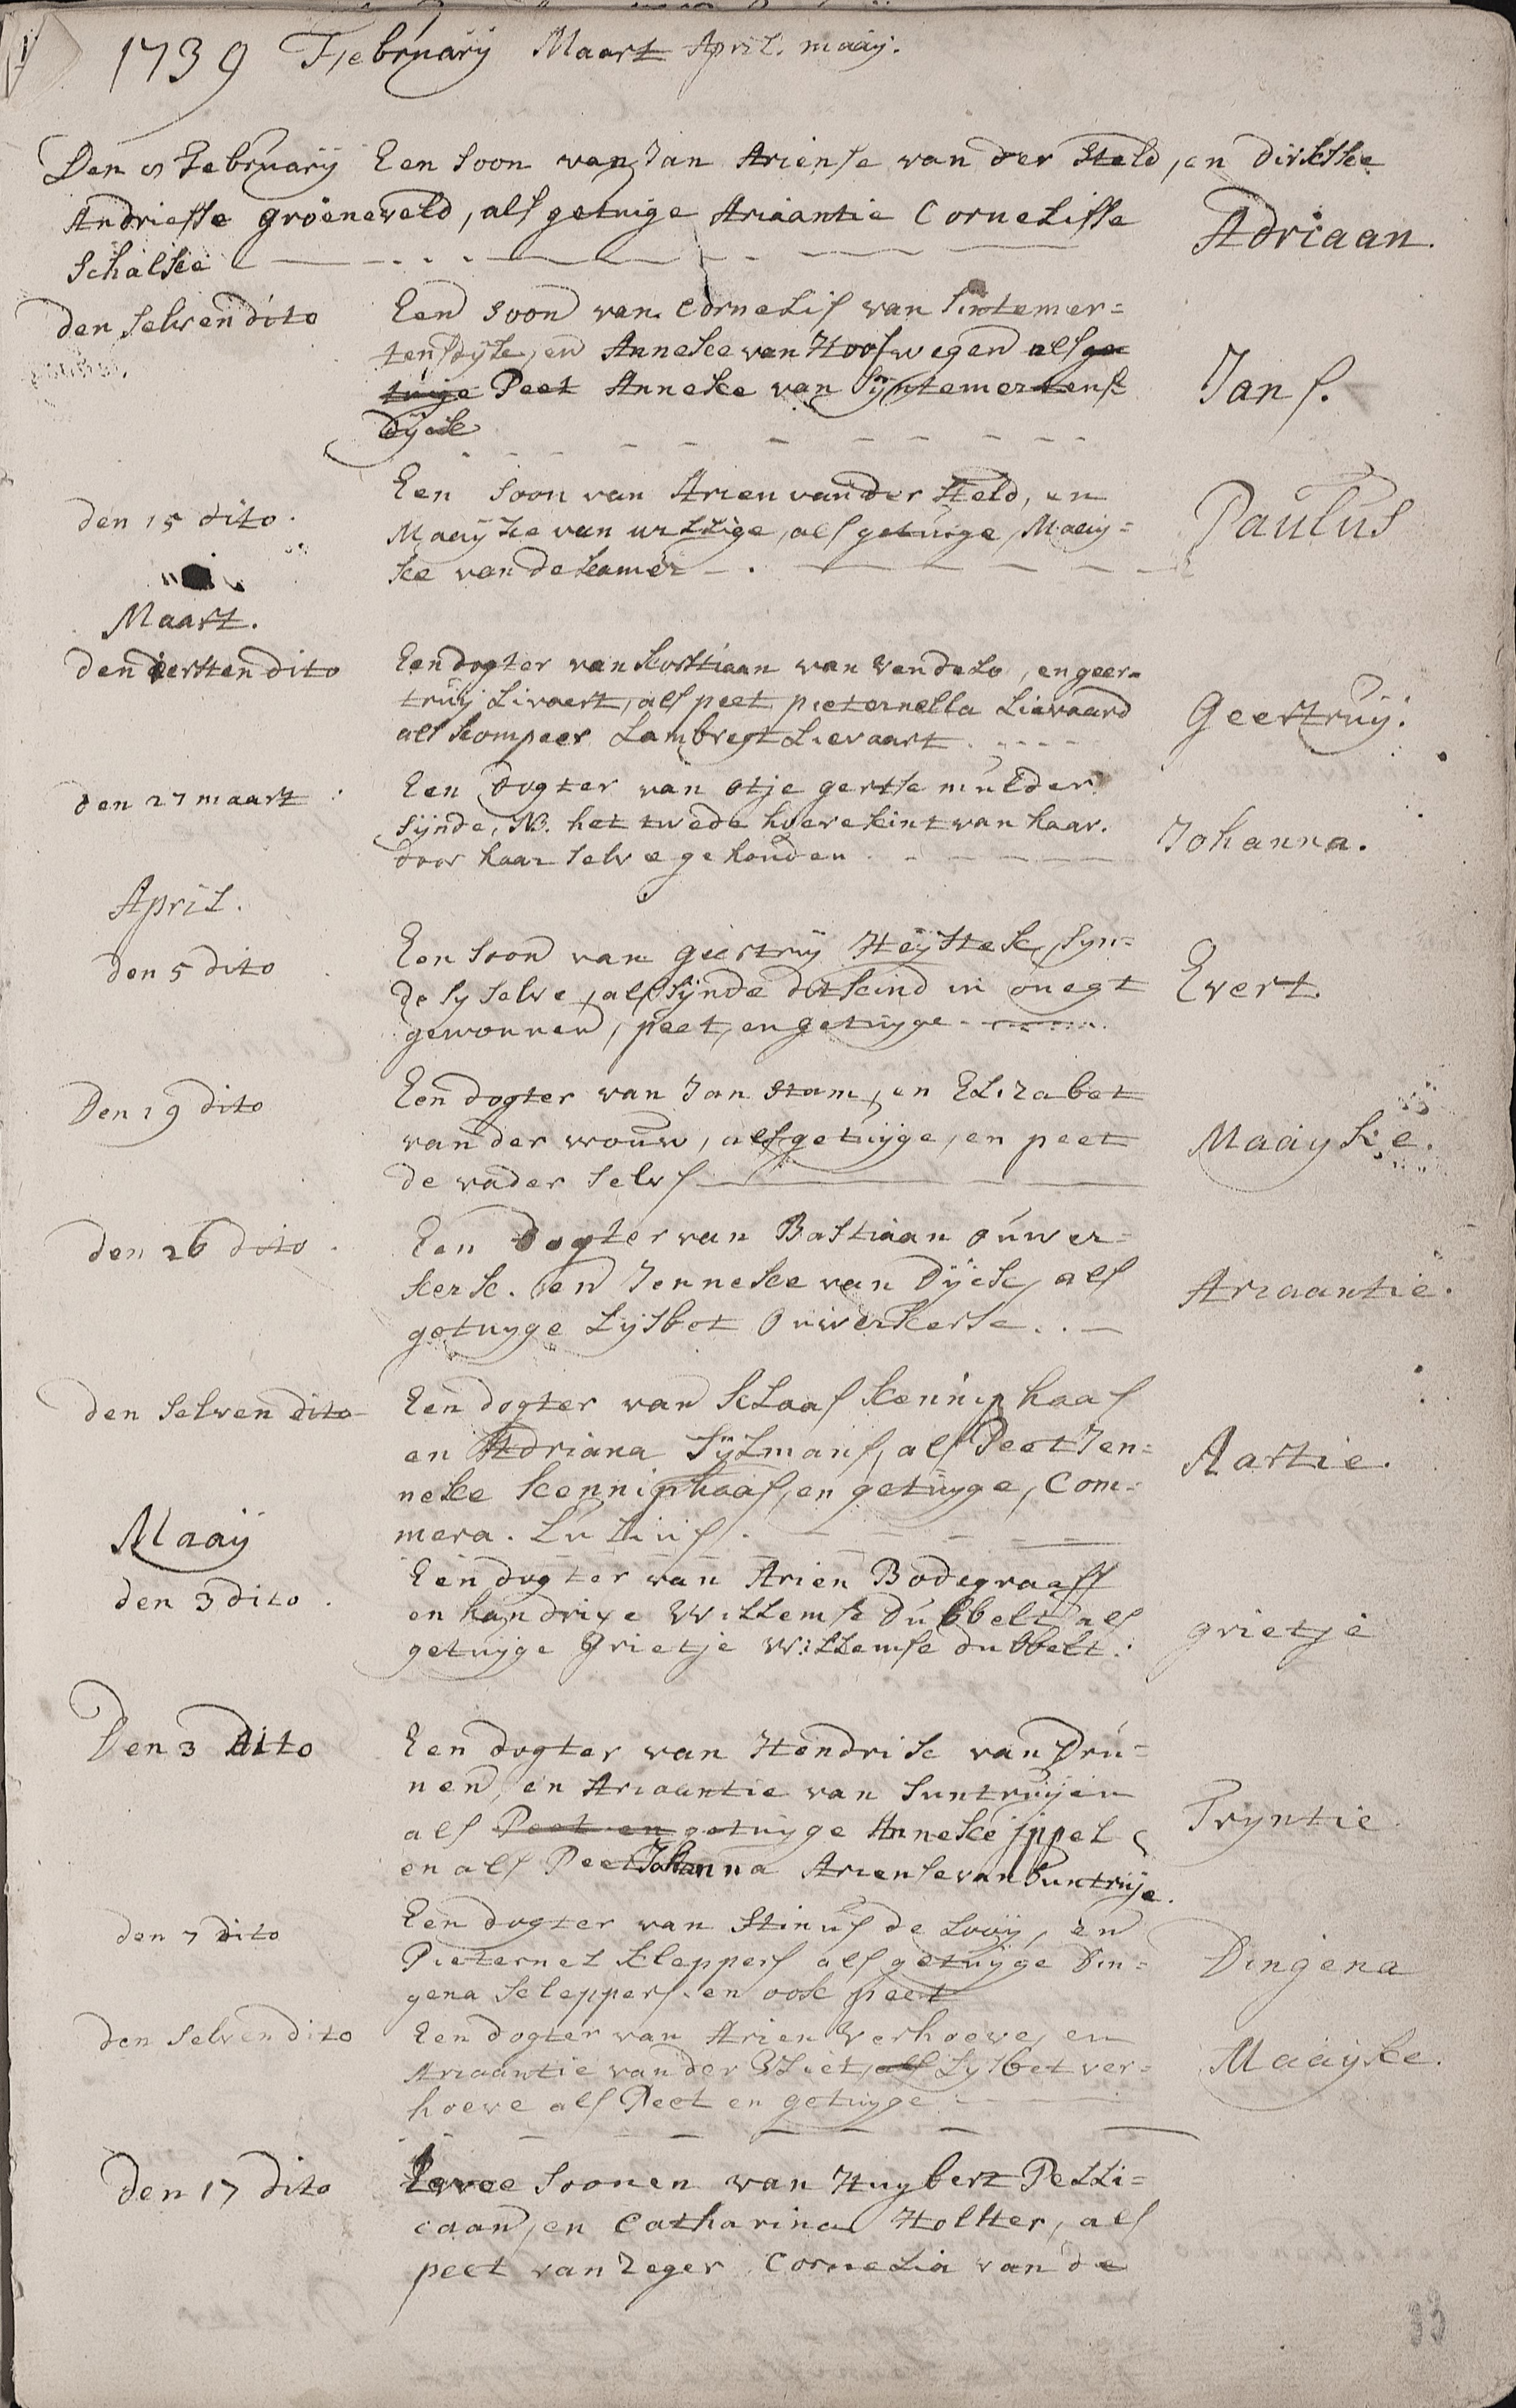 1739 February Maart April. maaij.
Den 8 February Een soon van Jan Ariense van der Held, en dirkske
Andriesse groeneveld, als getuige Ariaantie Cornelisse
Schalke
Adriaan.
den selven dito Een soon van Cornelis van Sintemer=
tensdijk, en Anneke van Hoofwegen als ge
tuige Peet Anneke van Sijntemertens
dijck
Jans.
den 15 dito. Een soon van Arien vander Held, en
Maaijke van , als getuige, Maaij=
ke van de kamer
Paulus
Maart.
den eersten dito Een dogter van korstiaan van Vendelo, en geer=
truij Livaert, als peet pieternella Lievaard
als kompeer Lambregt Lievaart.
Geertruij.
den 27 maart Een Dogter van otje gertse mulder
sijnde, NB. het twede hoerekint van haar.
door haar selve gehouden
Johanna.
April.
den 5 dito Een soon van geertruij Heijstek, syn=
de sy selve, als sijnde dit kind in onegt
gewonnen, peet, en getuyge
Evert.
Den 19 dito Een dogter van Jan stam, en Elizabet
van der wouw, als getuijge, en peet
de vader selvs
Maaijke.
den 26 dito Een Dogter van Bastiaan ouwer=
kerk. en Jenneke van Dijck, als
getuyge Lijsbet Ouwerkerk
Ariaantie.
den selven dito Een dogter van klaas kenniphaas
en Adriana Sijlmans, als Peet Jen=
neke kenniphaas, en getuyge, Com=
mera.
Aartie.
Maaij
den 3 dito. Een dogter van Arien Bodegraaff
en handrixe Willemse Dubbelt als
getuijge Grietje Willemse dubbelt.
grietje
Den 3 dito Een dogter van Hendrik van Dru=
nen, en Ariaantie van Suntruijen
als Peet en getuyge Anneke ippel
en als Peet Johanna Ariense van Suntruije.
Tryntie
den 7 dito Een dogter van Stinus de Looij, en
Pieternel kleppers als getuijge Din=
gena kleppers. en ook peet
Dingena
den selven dito Een dogter van Arien Verhoeve, en
Ariaantie van der Vliet, als Lijsbet ver=
hoeve als Peet en getuyge
Maaijke.
den 17 dito Twee soonen van Huybert Pelli=
caan, en Catharina Holster, als
peet van Zeger Cornelia van de
33